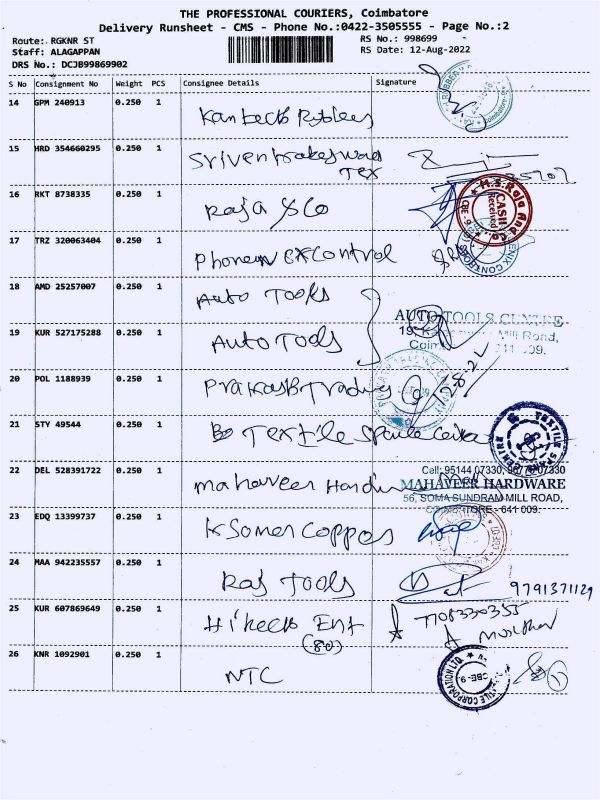 THE PROFESSIONAL COURIERS, Coimbatore
Delivery Runsheet - CMS - Phone No.:0422-3505555 - Page No.:2
Route: RGKNR ST
RS No.: 998699
Staff: ALAGAPPAN
RS Date: 12-Aug-2022
DRS No.: DCJB99869902
S No Consignment No Weight PCS Consignee Details Signature
14 GPM 240913 0.250 1
15 HRD 354660295 0.250 1 Sri Venkateswara
Tex
16 RKT 8738335 0.250 1 Raja & Co
M.S. Raja And Co.
CASH
Received
CBE-6
17 TRZ 320063404 0.250 1
18 AMD 25257007 0.250 1 Auto Tools
AUTO TOOLS CENTRE
19 KUR 527175288 0.250 1 Auto Tools
Mill Road,
20 POL 1188939 0.250 1 Prakash Trading
21 STY 49544 0.250 1 Textile
22 DEL 528391722 0.250 1 Mahaveer
Cell: 95144 07330
MAHAVEER HARDWARE
56, SOMA SUNDRAM MILL ROAD,
COIMBATORE - 641 009.
23 EDQ 13399737 0.250 1
24 MAA 942235557 0.250 1 Raj Tools
9791371129
25 KUR 607869649 0.250 1 Ent
(80)
7708330355
26 KNR 1092901 0.250 1 NTC
CBE-9